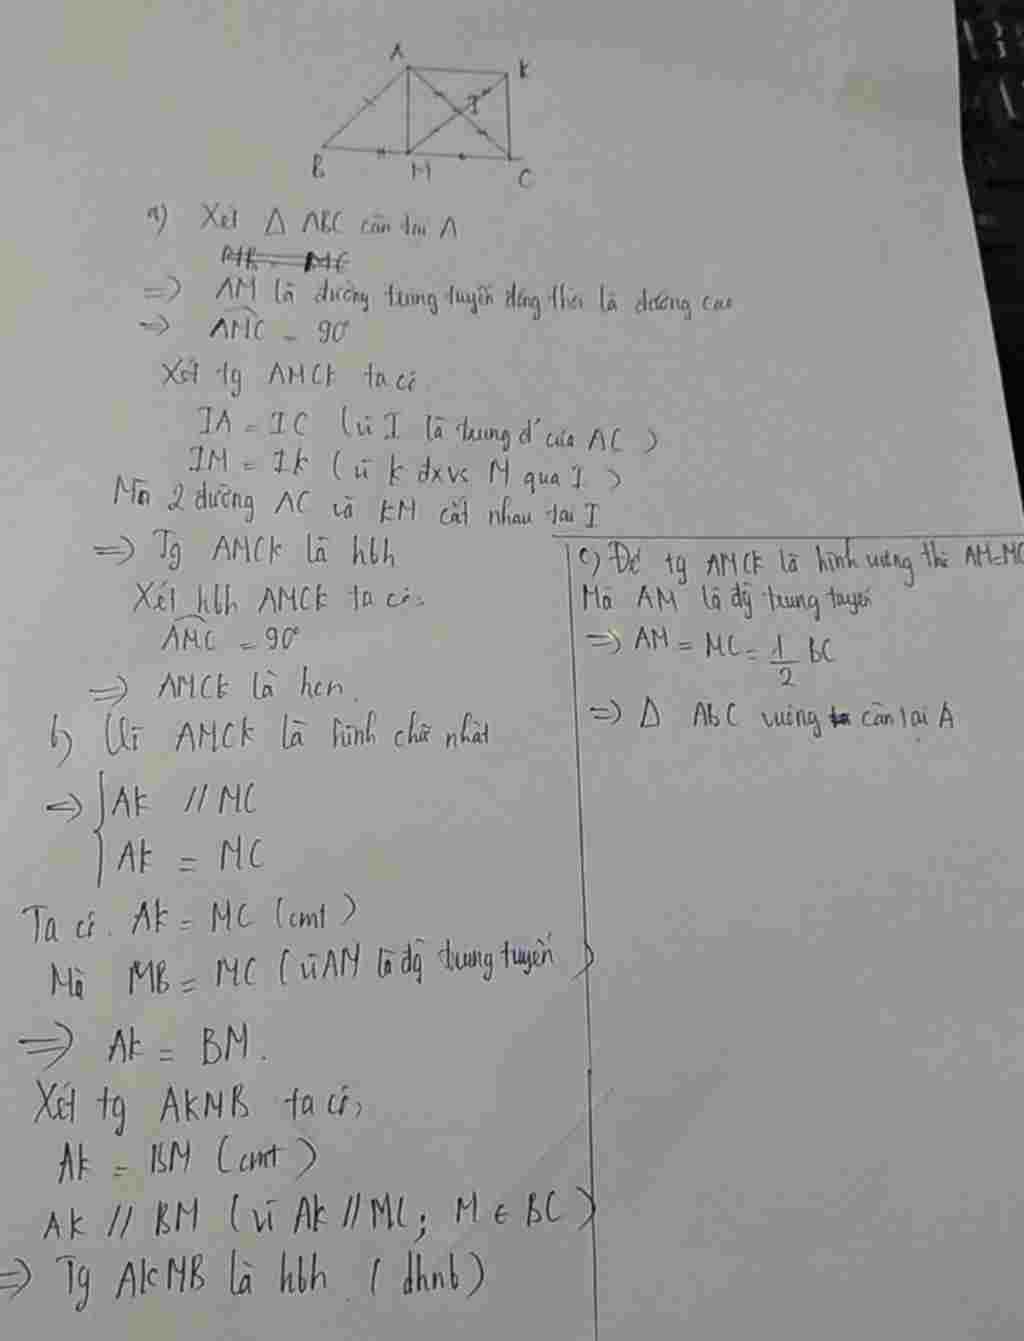 A
K
I
B
M
C
a) Xét Δ ABC cân tại A
=> AM là đường trung tuyến đồng thời là đường cao
=> AMC = 90°
Xét tg AMCK ta có
IA = IC (vì I là trung đ' của AC)
IM = IK (vì K đx vs M qua I)
Mà 2 đường AC và KM cắt nhau tại I
=> Tg AMCK là hbh
Xét hbh AMCK ta có:
AMC = 90°
=> AMCK là hcn.
b) Vì AMCK là hình chữ nhật
=> { AK // MC
AK = MC
Ta có. AK = MC (cmt)
Mà MB = MC (vì AM là đg trung tuyến)
=> AK = BM.
Xét tg AKMB ta có,
AK = BM (cmt)
AK // BM (vì AK // MC; M ∈ BC)
=> Tg AKMB là hbh (dhnb)
c) Để tg AMCK là hình vuông thì AM=MC
Mà AM là đg trung tuyến
=> AM = MC = 1/2 BC
=> Δ ABC vuông cân tại A